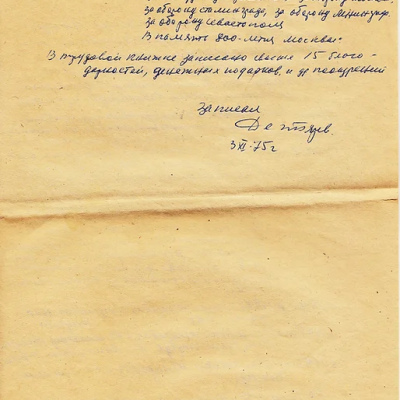 за оборону Сталинграда, за оборону Ленинграда.
за оборону Севастополя
В память 800-летия Москвы.
В трудовой книжке записано свыше 15 благо-
дарностей, денежных подарков, и др поощрений
Записал
3 XI-75 г